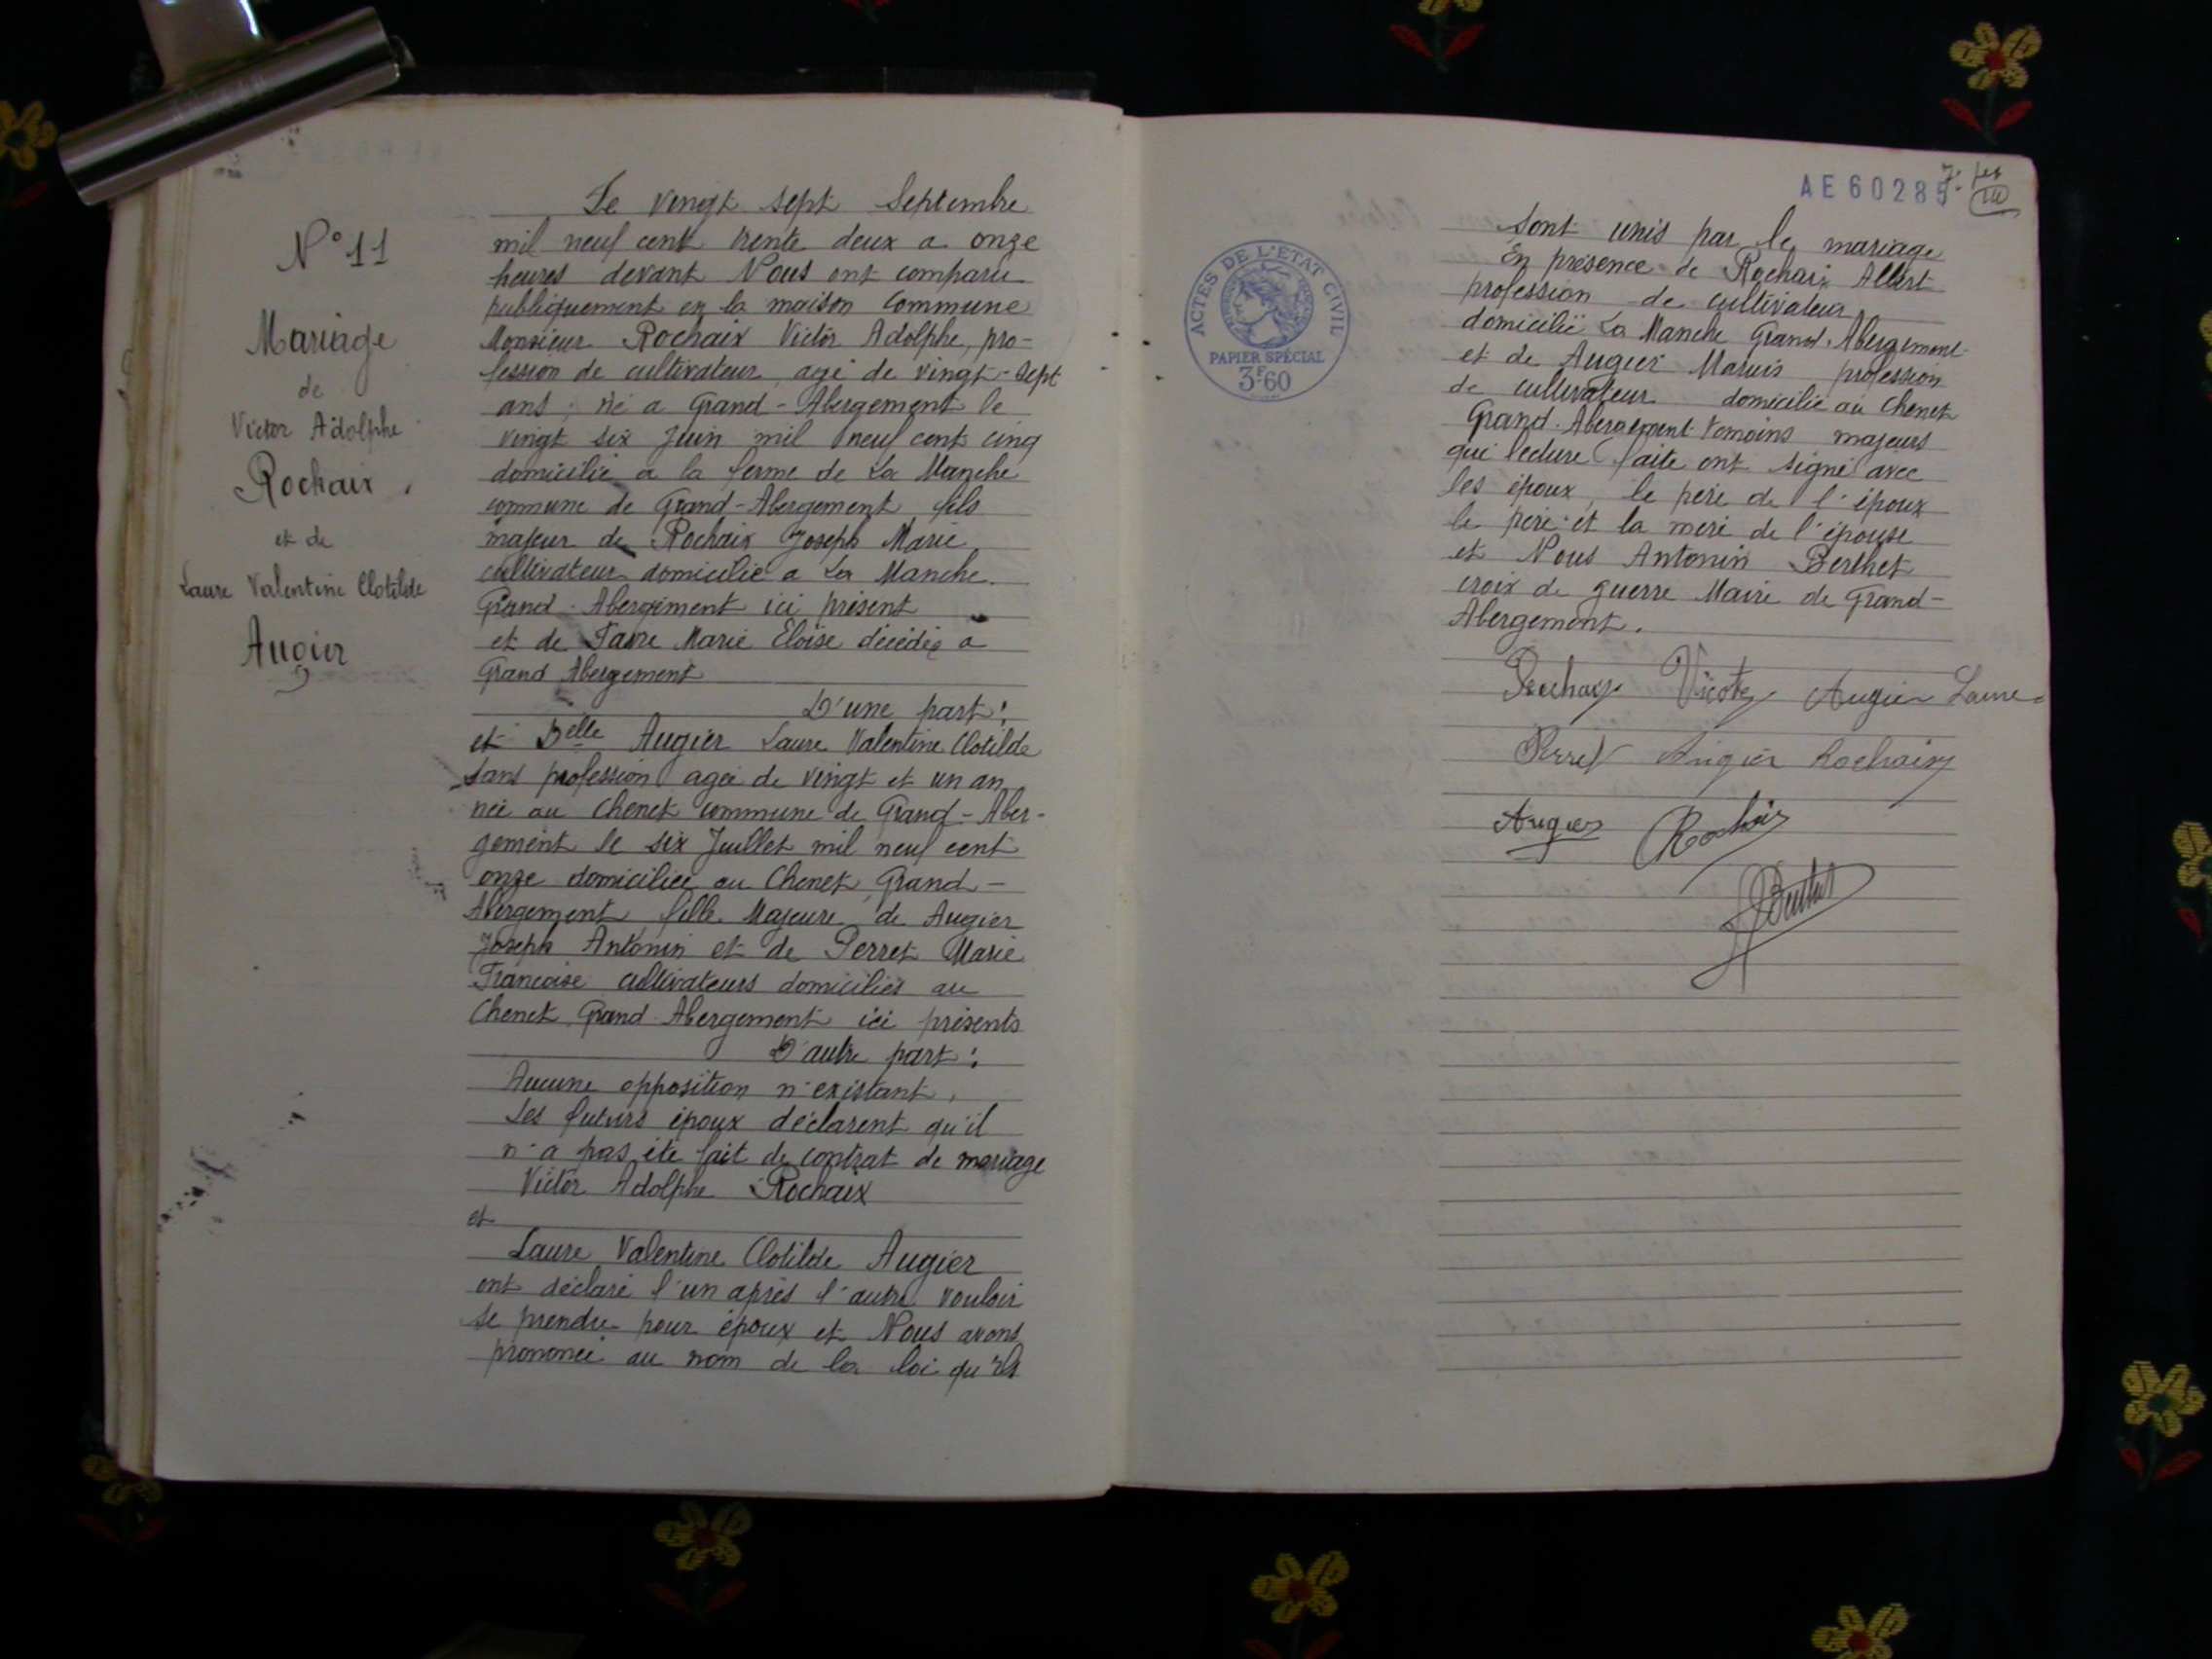 N° 11
Mariage
de
Victor Adolphe
Rochaix
et de
Laure Valentine Clotilde
Augier
Le vingt sept Septembre
mil neuf cent trente deux a onze
heures devant Nous ont comparu
publiquement en la maison commune
Monsieur Rochaix Victor Adolphe, pro-
fession de cultivateur, agé de vingt-sept
ans, né a Grand-Abergement le
vingt six Juin mil neuf cent cinq
domicilié a la ferme de La Manche
commune de Grand-Abergement, fils
majeur de Rochaix Joseph Marie
cultivateur domicilié a La Manche
Grand-Abergement ici présent
et de Favre Marie Eloïse décédée a
Grand Abergement
D'une part:
et Delle Augier Laure Valentine Clotilde
sans profession agée de vingt et un an
née au Chenet commune de Grand-Aber-
gement le six Juillet mil neuf cent
onze domiciliée au Chenet Grand-
Abergement fille Majeure de Augier
Joseph Antonin et de Perret Marie
Francoise cultivateurs domiciliés au
Chenet Grand Abergement ici présents
D'autre part:
Aucune opposition n'existant,
Les futurs époux déclarent qu'il
n'a pas été fait de contrat de mariage
Victor Adolphe Rochaix
et
Laure Valentine Clotilde Augier
ont déclaré l'un après l'autre vouloir
se prendre pour époux et Nous avons
prononcé au nom de la loi qu'ils
AE60285
ACTES DE L'ETAT CIVIL
PAPIER SPÉCIAL
3F.60
Sont unis par le mariage
En présence de Rochaix Albert
profession de cultivateur
domicilié La Manche Grand-Abergement
et de Augier Marius profession
de cultivateur domicilié au Chenet
Grand-Abergement témoins majeurs
qui lecture faite ont signé avec
les époux, le père de l'époux
le père et la mere de l'épouse
et Nous Antonin Berthet
croix de guerre Maire de Grand-
Abergement.
Rochaix Victor Augier Laure
Perret Augier Rochaix
Augier Rochaix
Berthet